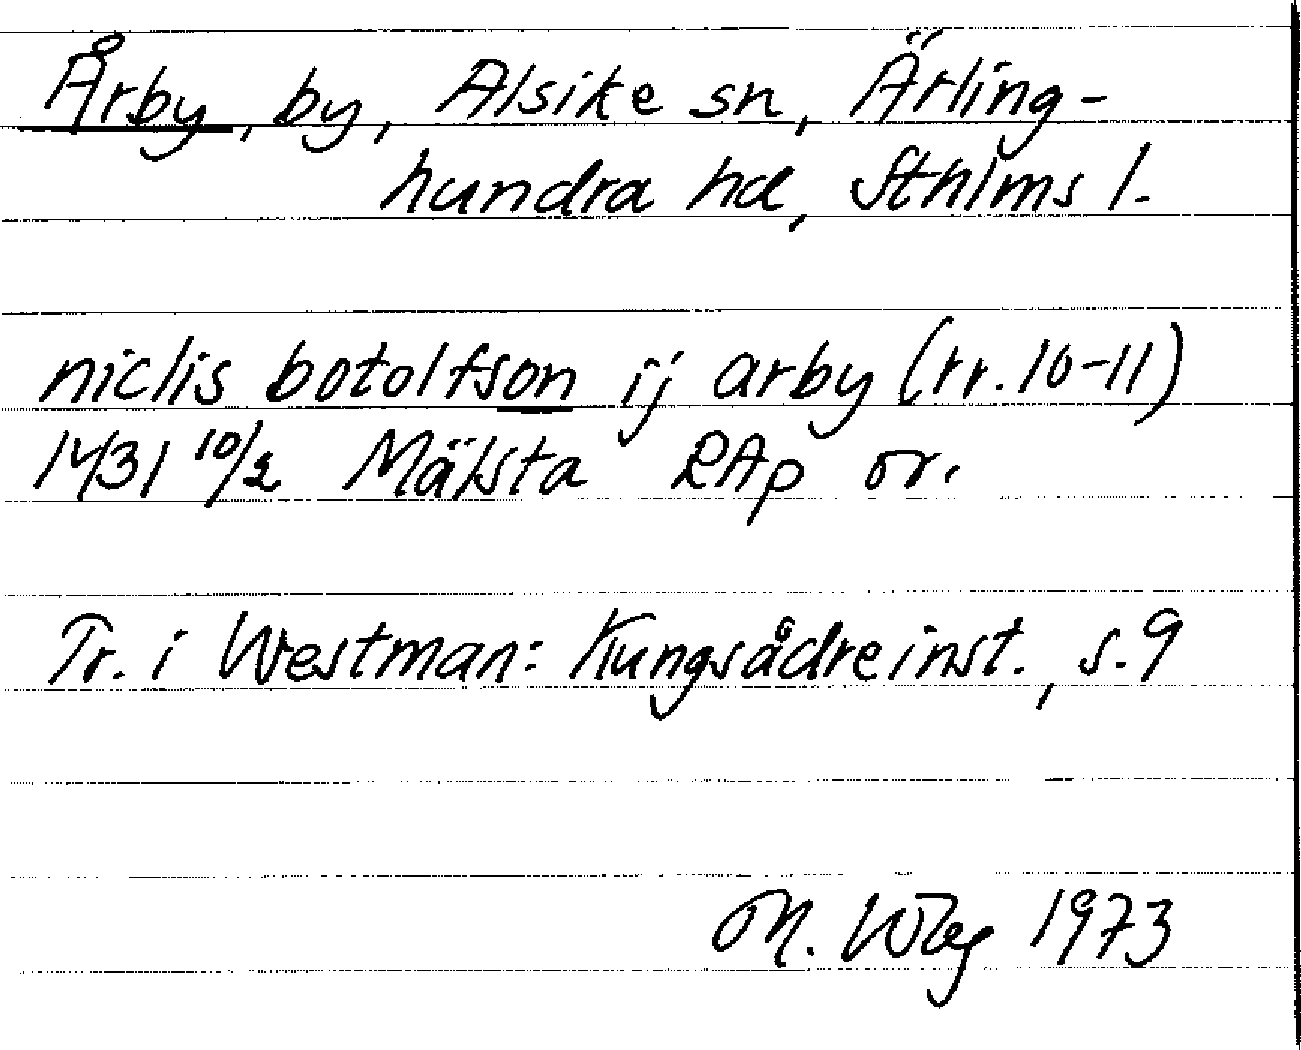 Årby, by, Alsike sn, Ärling-
hundra hd, Sthlms l.
niclis botolfson ij arby (rr. 10-11)
1431 10/2 Mälsta RAp or.
Tr. i Westman: Kungsådreinst., s. 9
M. Wbg 1973